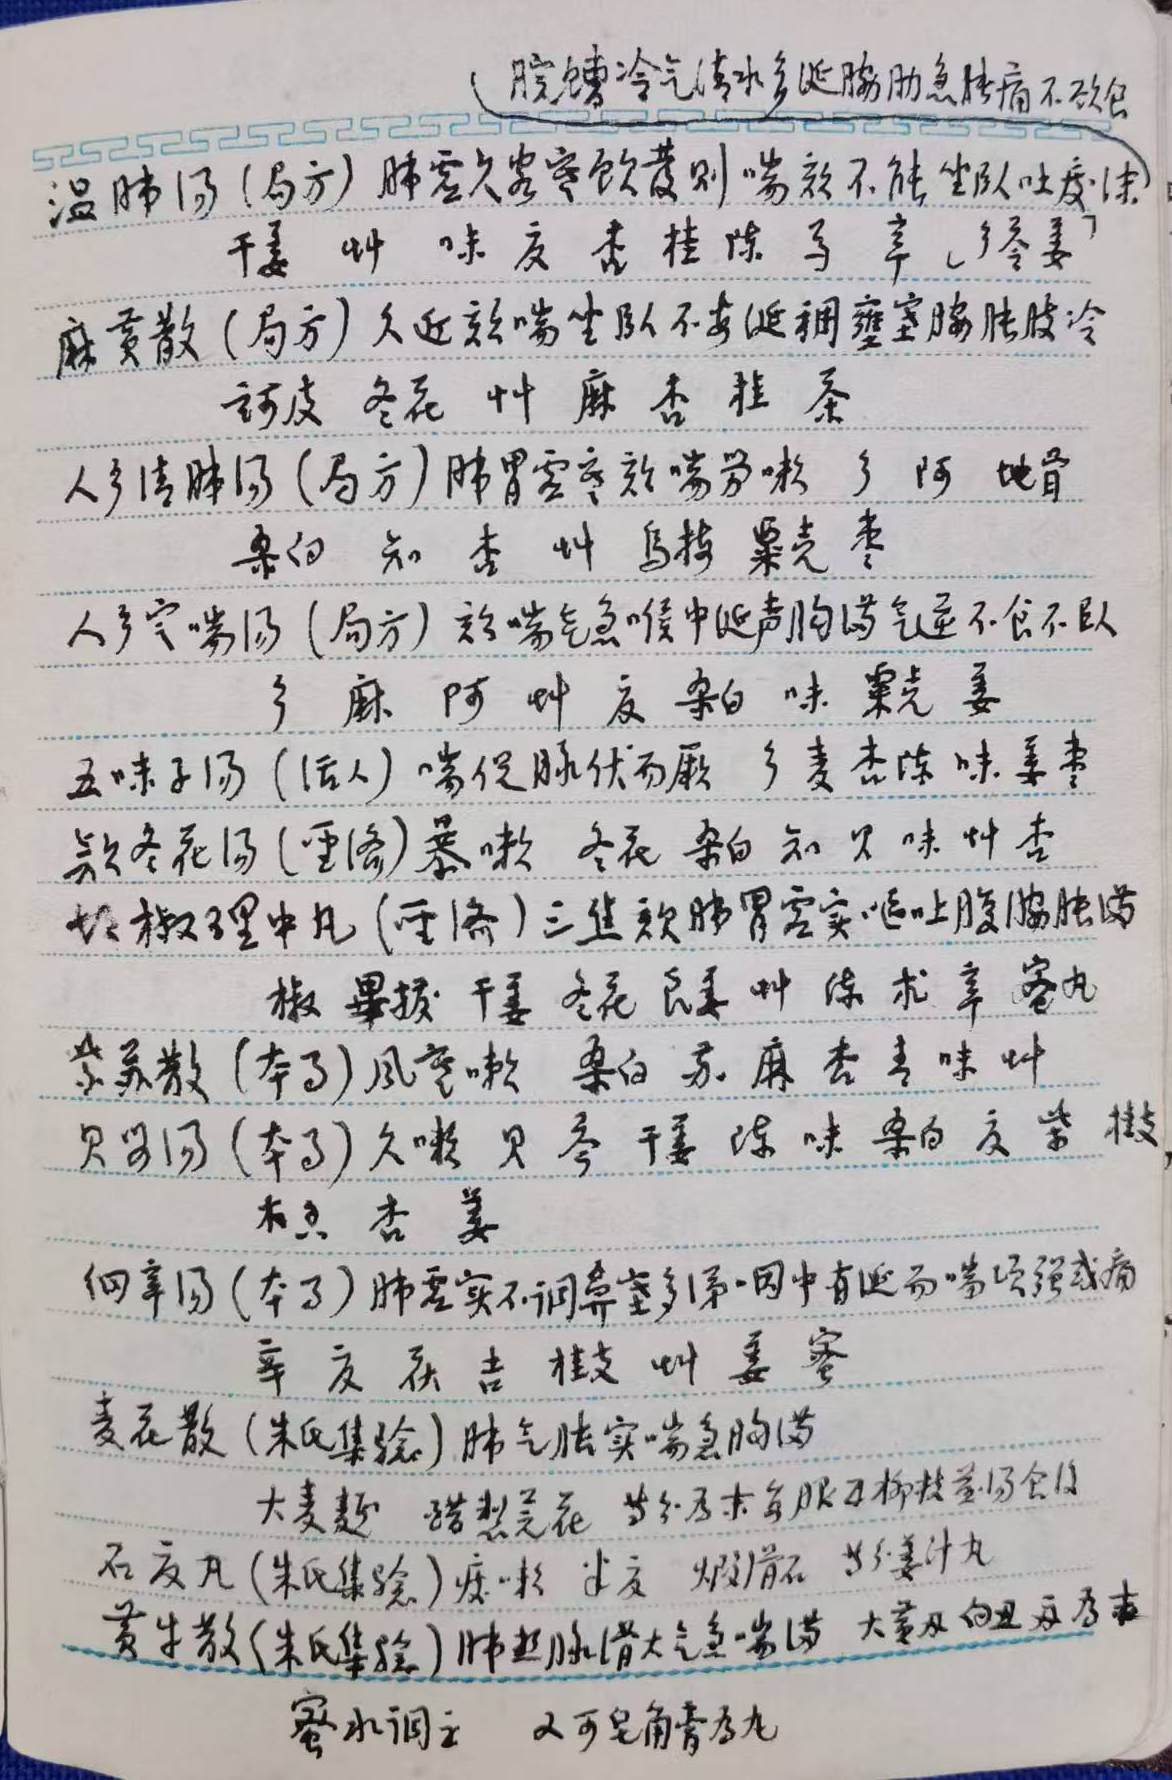 脘嘈冷气清水多涎胁肋急胀痛不欲食
温肺汤(局方)肺虚久客寒饮发则喘咳不能坐卧吐痰沫
干姜 艸 味 夏 杏 桂 陈 辛 参 姜
麻黄散(局方)久近咳喘坐卧不安涎稠壅塞胁胀肢冷
诃皮 冬花 艸 麻 杏 桂 茶
人参清肺汤(局方)肺胃虚寒咳喘劳嗽 参 阿 地骨
桑白 知 杏 艸 乌梅 粟壳 枣
人参定喘汤(局方)咳喘气急喉中涎声胸满气逆不食不卧
参 麻 阿 艸 夏 桑白 味 粟壳 姜
五味子汤(活人)喘促脉伏而厥 参 麦 杏 陈 味 姜 枣
款冬花汤(圣济)暴嗽 冬花 桑白 知 贝 味 艸 杏
胡椒理中丸(圣济)三焦咳肺胃虚实呕吐腹胁胀满
椒 毕拨 干姜 冬花 良姜 艸 陈 术 辛 蜜丸
紫苏散(本事)風寒嗽 桑白 苏 麻 杏 青 味 艸
贝母汤(本事)久嗽 贝 芩 干姜 陈 味 桑白 夏 柴 桂枝
木香 杏 姜
细辛汤(本事)肺虚实不调鼻塞多涕咽中有涎而喘项强或痛
辛 夏 茯 吉 桂枝 艸 姜 蜜
麦花散(朱氏集验)肺气胀实喘急胸满
大麦麺 醋熬芫花 等分为末每服 柳枝煎汤食后
石夏丸(朱氏集验)痰嗽 半夏 煅滑石 等分姜汁丸
黄牛散(朱氏集验)肺热脉滑大气急喘满 大黄 白丑 为末
蜜水调立 又可皂角膏为丸